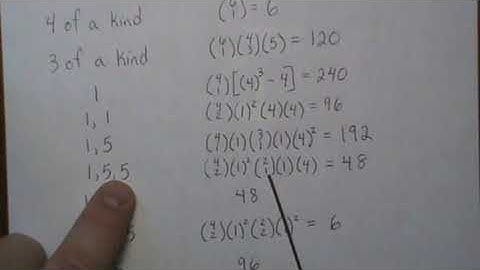 ( ) = 6
4 of a kind
(4 1)(4 3)(5) = 120
3 of a kind
1 (4 1)[(4)³ - 4] = 240
1, 1 (4 2)(1)²(4)(4) = 96
1, 5 (4 1)(1)(3 1)(1)(4)² = 192
1, 5, 5 (4 2)(1)²(2 1)(1)(4) = 48
48
(4 2)(1)²(2 2)( )² = 6
96